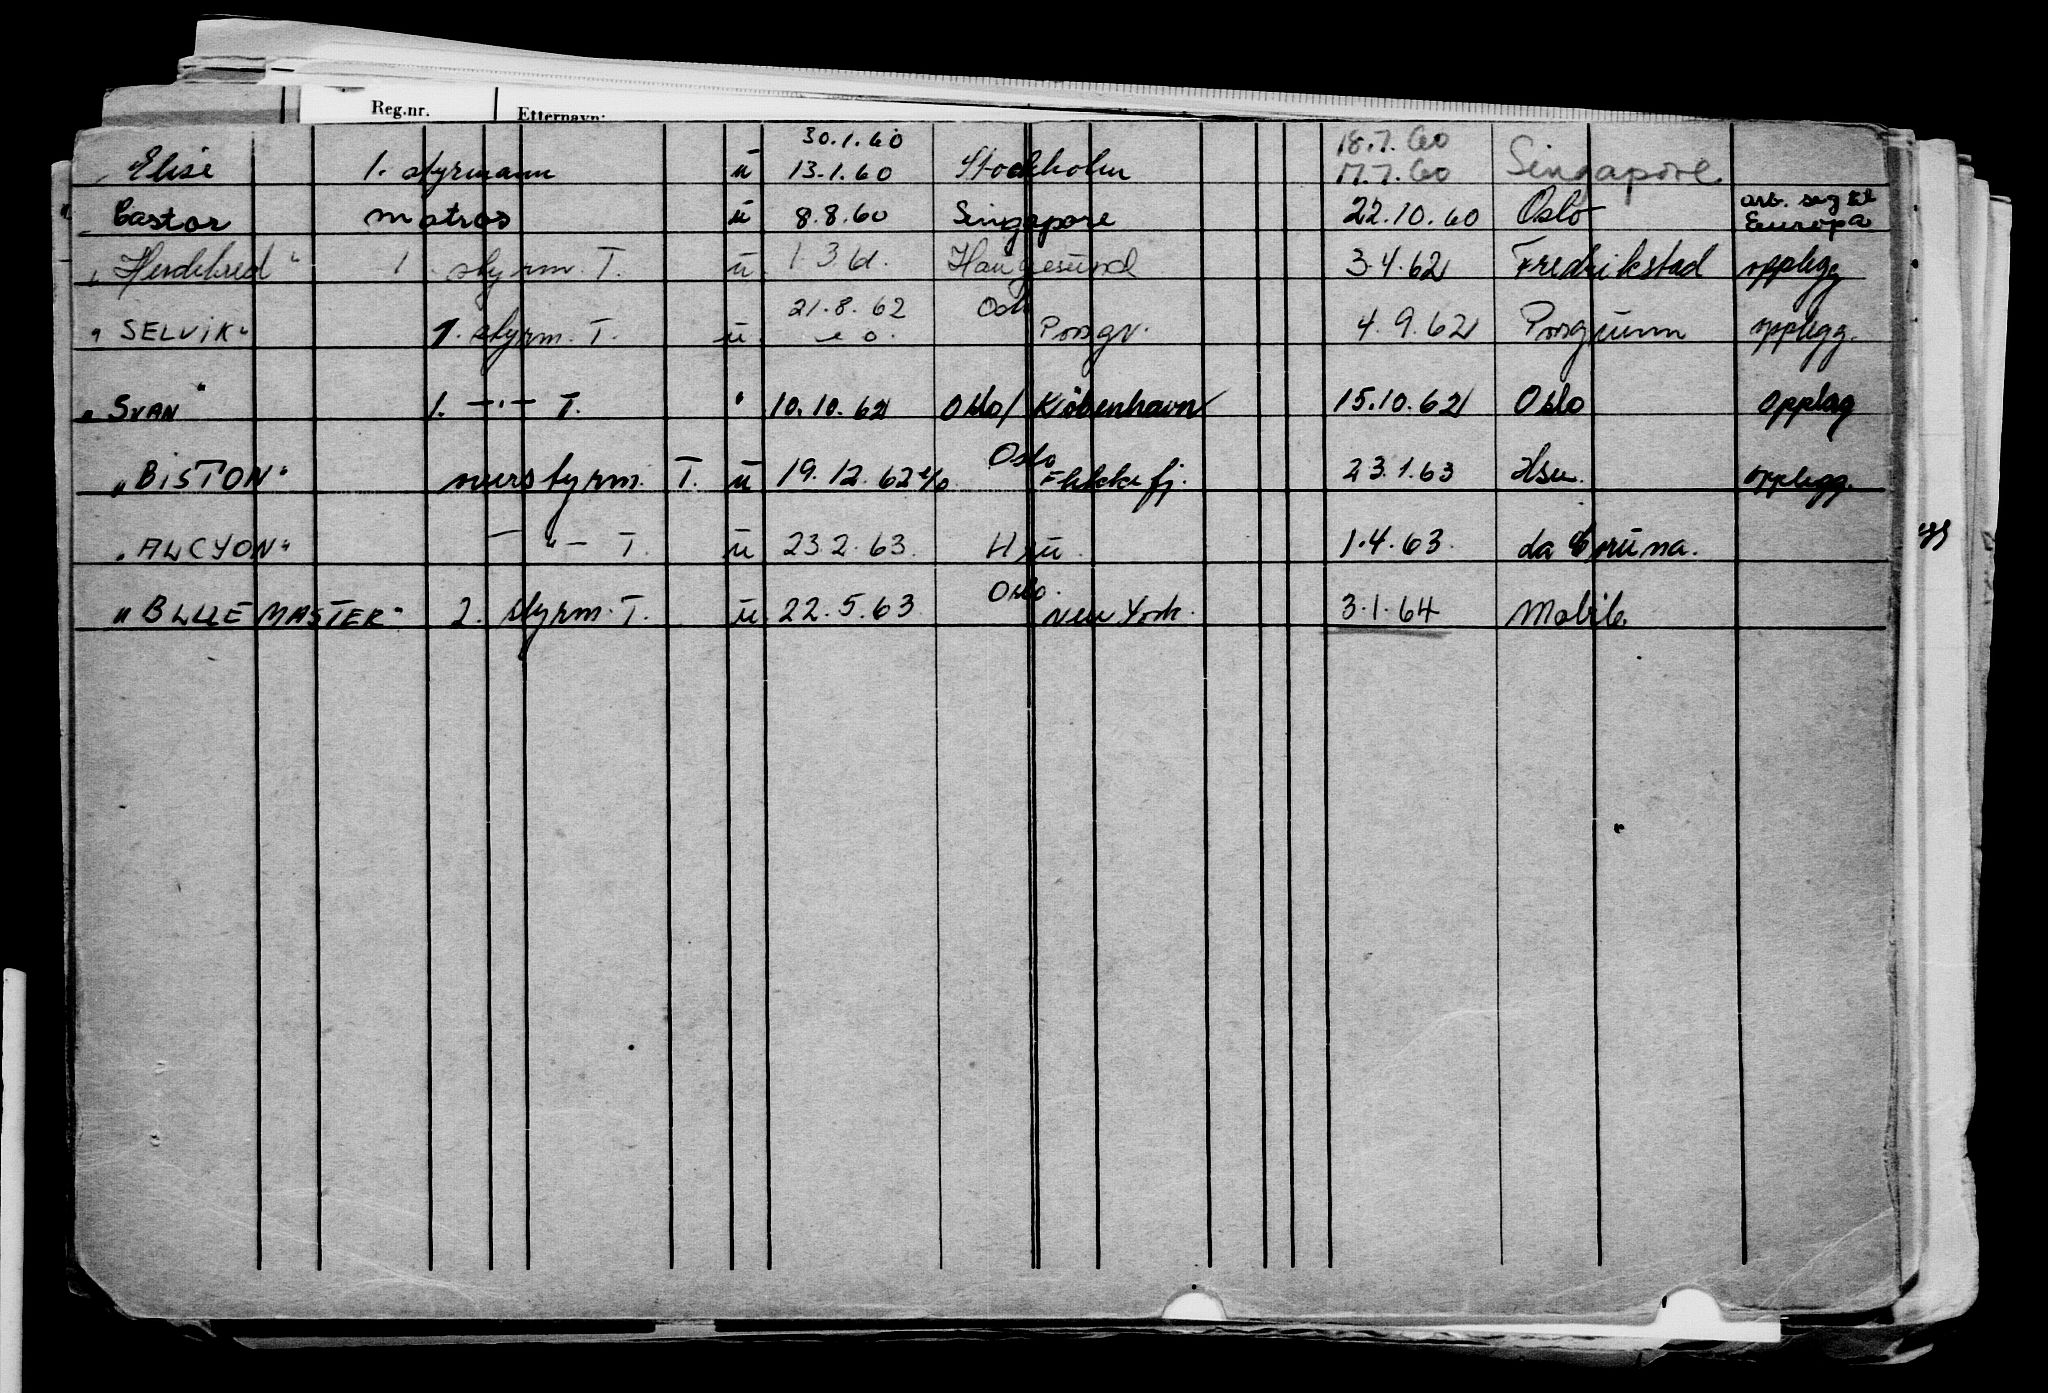 Reg.nr. Etternavn:
30.1.60 18.7.60
Elise 1. styrmann u 13.1.60 Stockholm 17.7.60 Singapore
arb. seg til
Castor matros u 8.8.60 Singapore 22.10.60 Oslo Europa
1 styrm. T. u. 1.3.61. Haugesund 3.4.62 Fredrikstad opplegg
21.8.62 Oslo
"SELVIK" 1. styrm. T. u. Porsgr. 4.9.62 Porsgrunn opplegg.
"SVAN" 1. —"— T. " 10.10.62 Oslo/København 15.10.62 Oslo opplag
Oslo
"BISTON" overstyrm. T. u 19.12.62 Flekkefj. 23.1.63 Hsu. opplegg.
"ALCYON" —"— T. u 23.2.63. Hsu. 1.4.63. La Coruna.
Oslo.
"BLUE MASTER" 2. styrm. T. u. 22.5.63 New York. 3.1.64 Mobile.